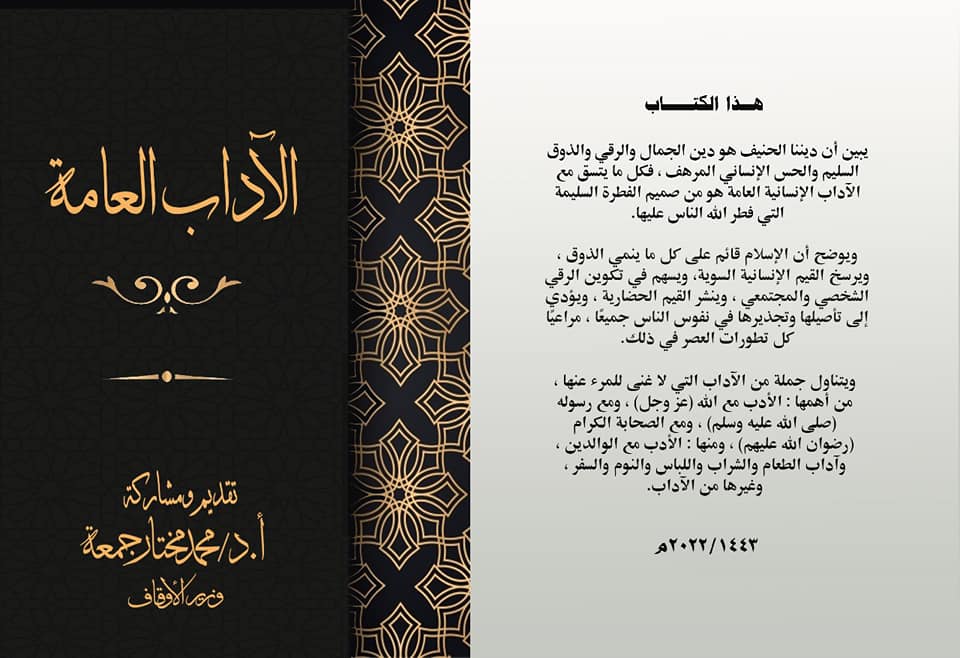 الآداب العامة
تقديم ومشاركة
أ.د/محمد مختار جمعة
وزير الأوقاف
هذا الكتاب
يبين أن ديننا الحنيف هو دين الجمال والرقي والذوق
السليم والحس الإنساني المرهف ، فكل ما يتسق مع
الآداب الإنسانية العامة هو من صميم الفطرة السليمة
التي فطر الله الناس عليها.
ويوضح أن الإسلام قائم على كل ما ينمي الذوق ،
ويرسخ القيم الإنسانية السوية، ويسهم في تكوين الرقي
الشخصي والمجتمعي ، وينشر القيم الحضارية ، ويؤدي
إلى تأصيلها وتجذيرها في نفوس الناس جميعًا ، مراعيًا
كل تطورات العصر في ذلك.
ويتناول جملة من الآداب التي لا غنى للمرء عنها ،
من أهمها : الأدب مع الله (عز وجل) ، ومع رسوله
(صلى الله عليه وسلم) ، ومع الصحابة الكرام
(رضوان الله عليهم) ، ومنها : الأدب مع الوالدين ،
وآداب الطعام والشراب واللباس والنوم والسفر ،
وغيرها من الآداب.
١٤٤٣/٢٠٢٢م